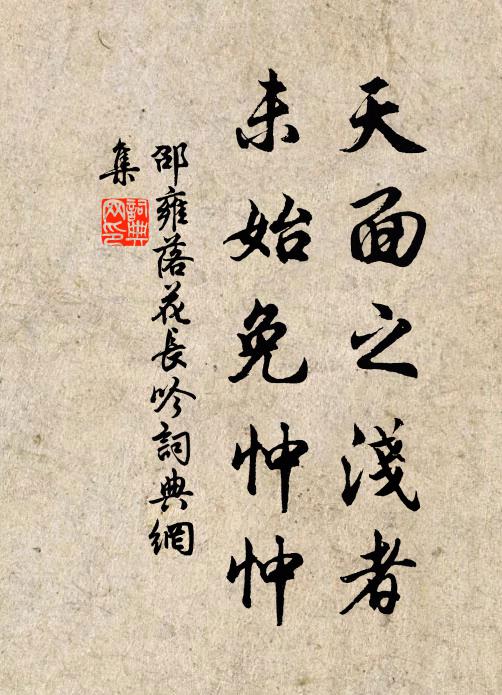 天面之淺者
未始免忡忡
邵雍落花長吟詞典網
集
詞典
网印